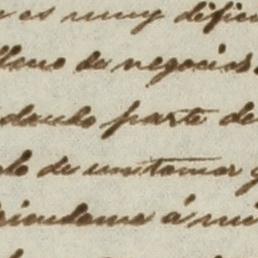 es muy dificu
lleno de negocios
dando parte de
de un tomar
riendome á mi